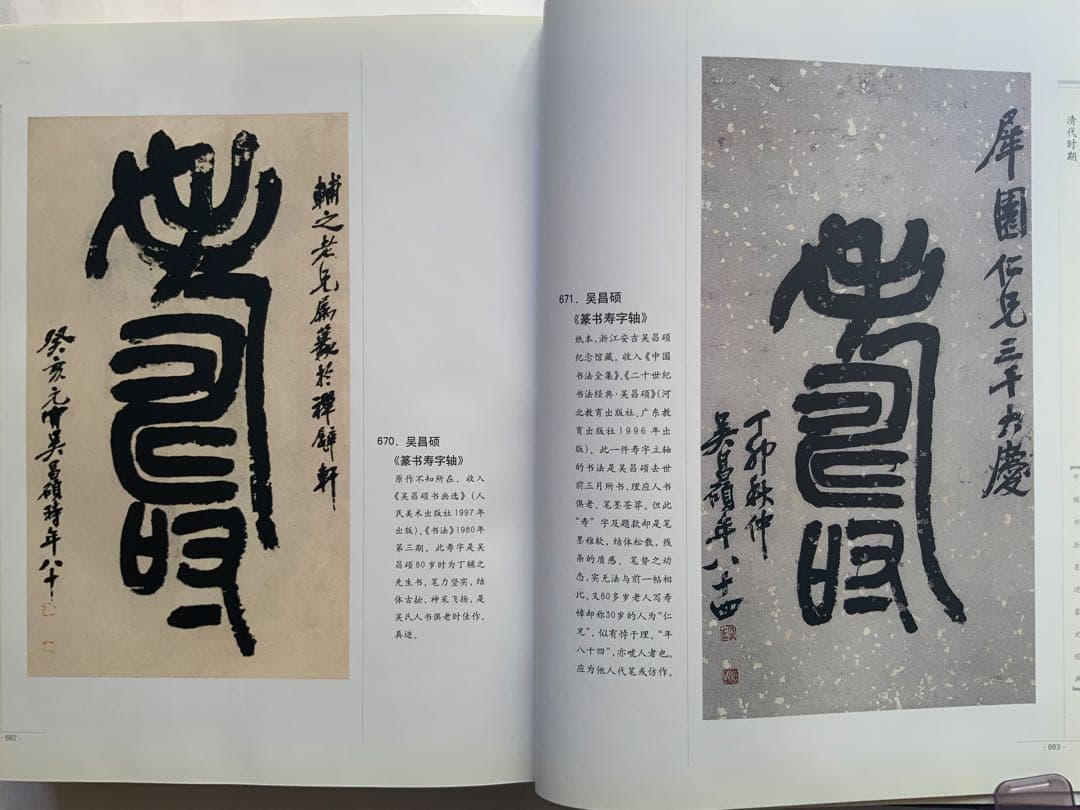 輔之老兄屬篆於禪甓軒
癸亥元宵吳昌碩時年八十
670．吴昌硕
《篆书寿字轴》
原作不知所在，收入
《吴昌硕书画选》（人
民美术出版社1997年
出版）、《书法》1980年
第三期。此寿字是吴
昌硕80岁时为丁辅之
先生书，笔力坚实，结
体古拙，神采飞扬，是
吴氏人书俱老时佳作。
真迹。
·682·
671．吴昌硕
《篆书寿字轴》
纸本，浙江安吉吴昌硕
纪念馆藏。收入《中国
书法全集》、《二十世纪
书法经典·吴昌硕》（河
北教育出版社、广东教
育出版社1996年出
版）。此一件寿字立轴
的书法是吴昌硕去世
前三月所书，理应人书
俱老、笔墨苍莽。但此
“寿”字及题款却是笔
墨稚软，结体松散，线
条的质感、笔势之动
态，实无法与前一帖相
比。又80多岁老人写寿
幛却称30岁的人为“仁
兄”，似有悖于理。“年
八十四”，亦唬人者也。
应为他人代笔或仿作。
犀園仁兄三十大慶
丁卯秋仲
吳昌碩年八十四
清代时期
·683·